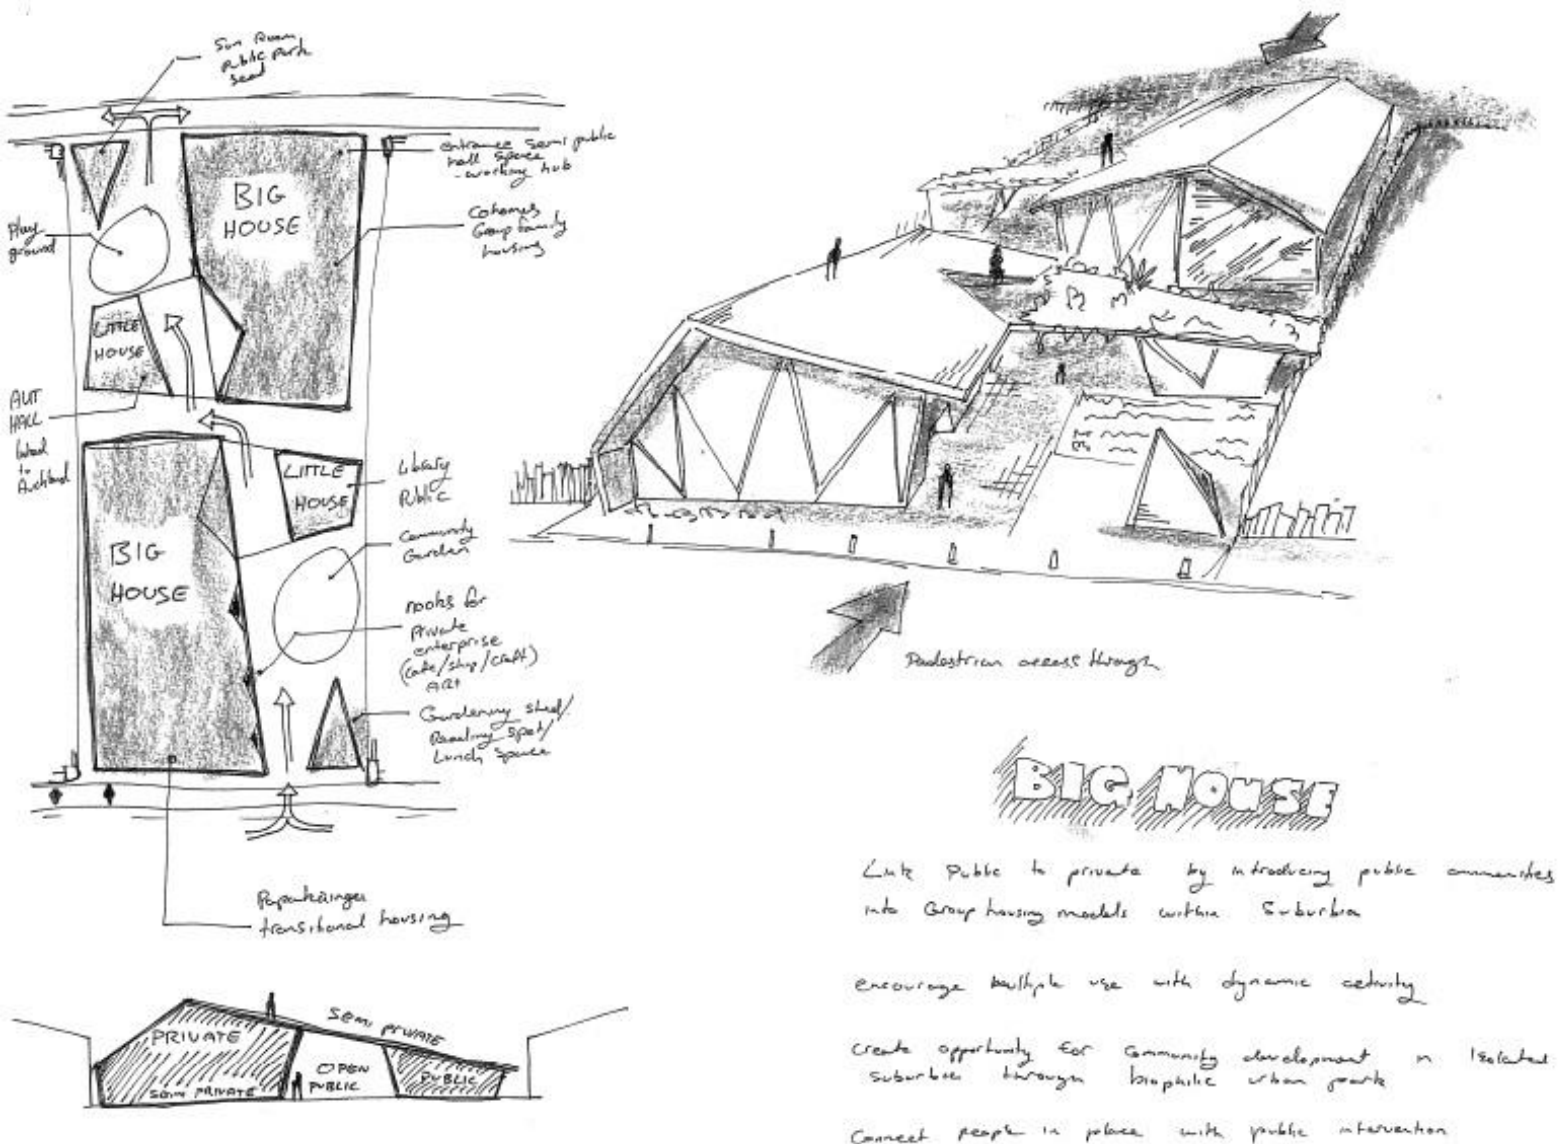 Sun Room
public park
seat
entrance semi public
hall space
- working hub
BIG
HOUSE
Cohomes
Group family
housing
Play
ground
LITTLE
HOUSE
AUT
HALL
to
Auckland
LITTLE
HOUSE
Library
Public
Community
Garden
BIG
HOUSE
nooks for
Private
enterprise
(cafe/shop/craft)
ART
Gardening shed/
Reading spot/
Lunch space
Papakāinga
transitional housing
SEMI PRIVATE
PRIVATE
SEMI PRIVATE
OPEN
PUBLIC
PUBLIC
Pedestrian access through
BIG HOUSE
Link Public to private by introducing public
into Group housing models within Suburbia
encourage multiple use with dynamic activity
create opportunity for community development in Isolated
suburbia through biophilic urban park
Connect people in place with public intervention